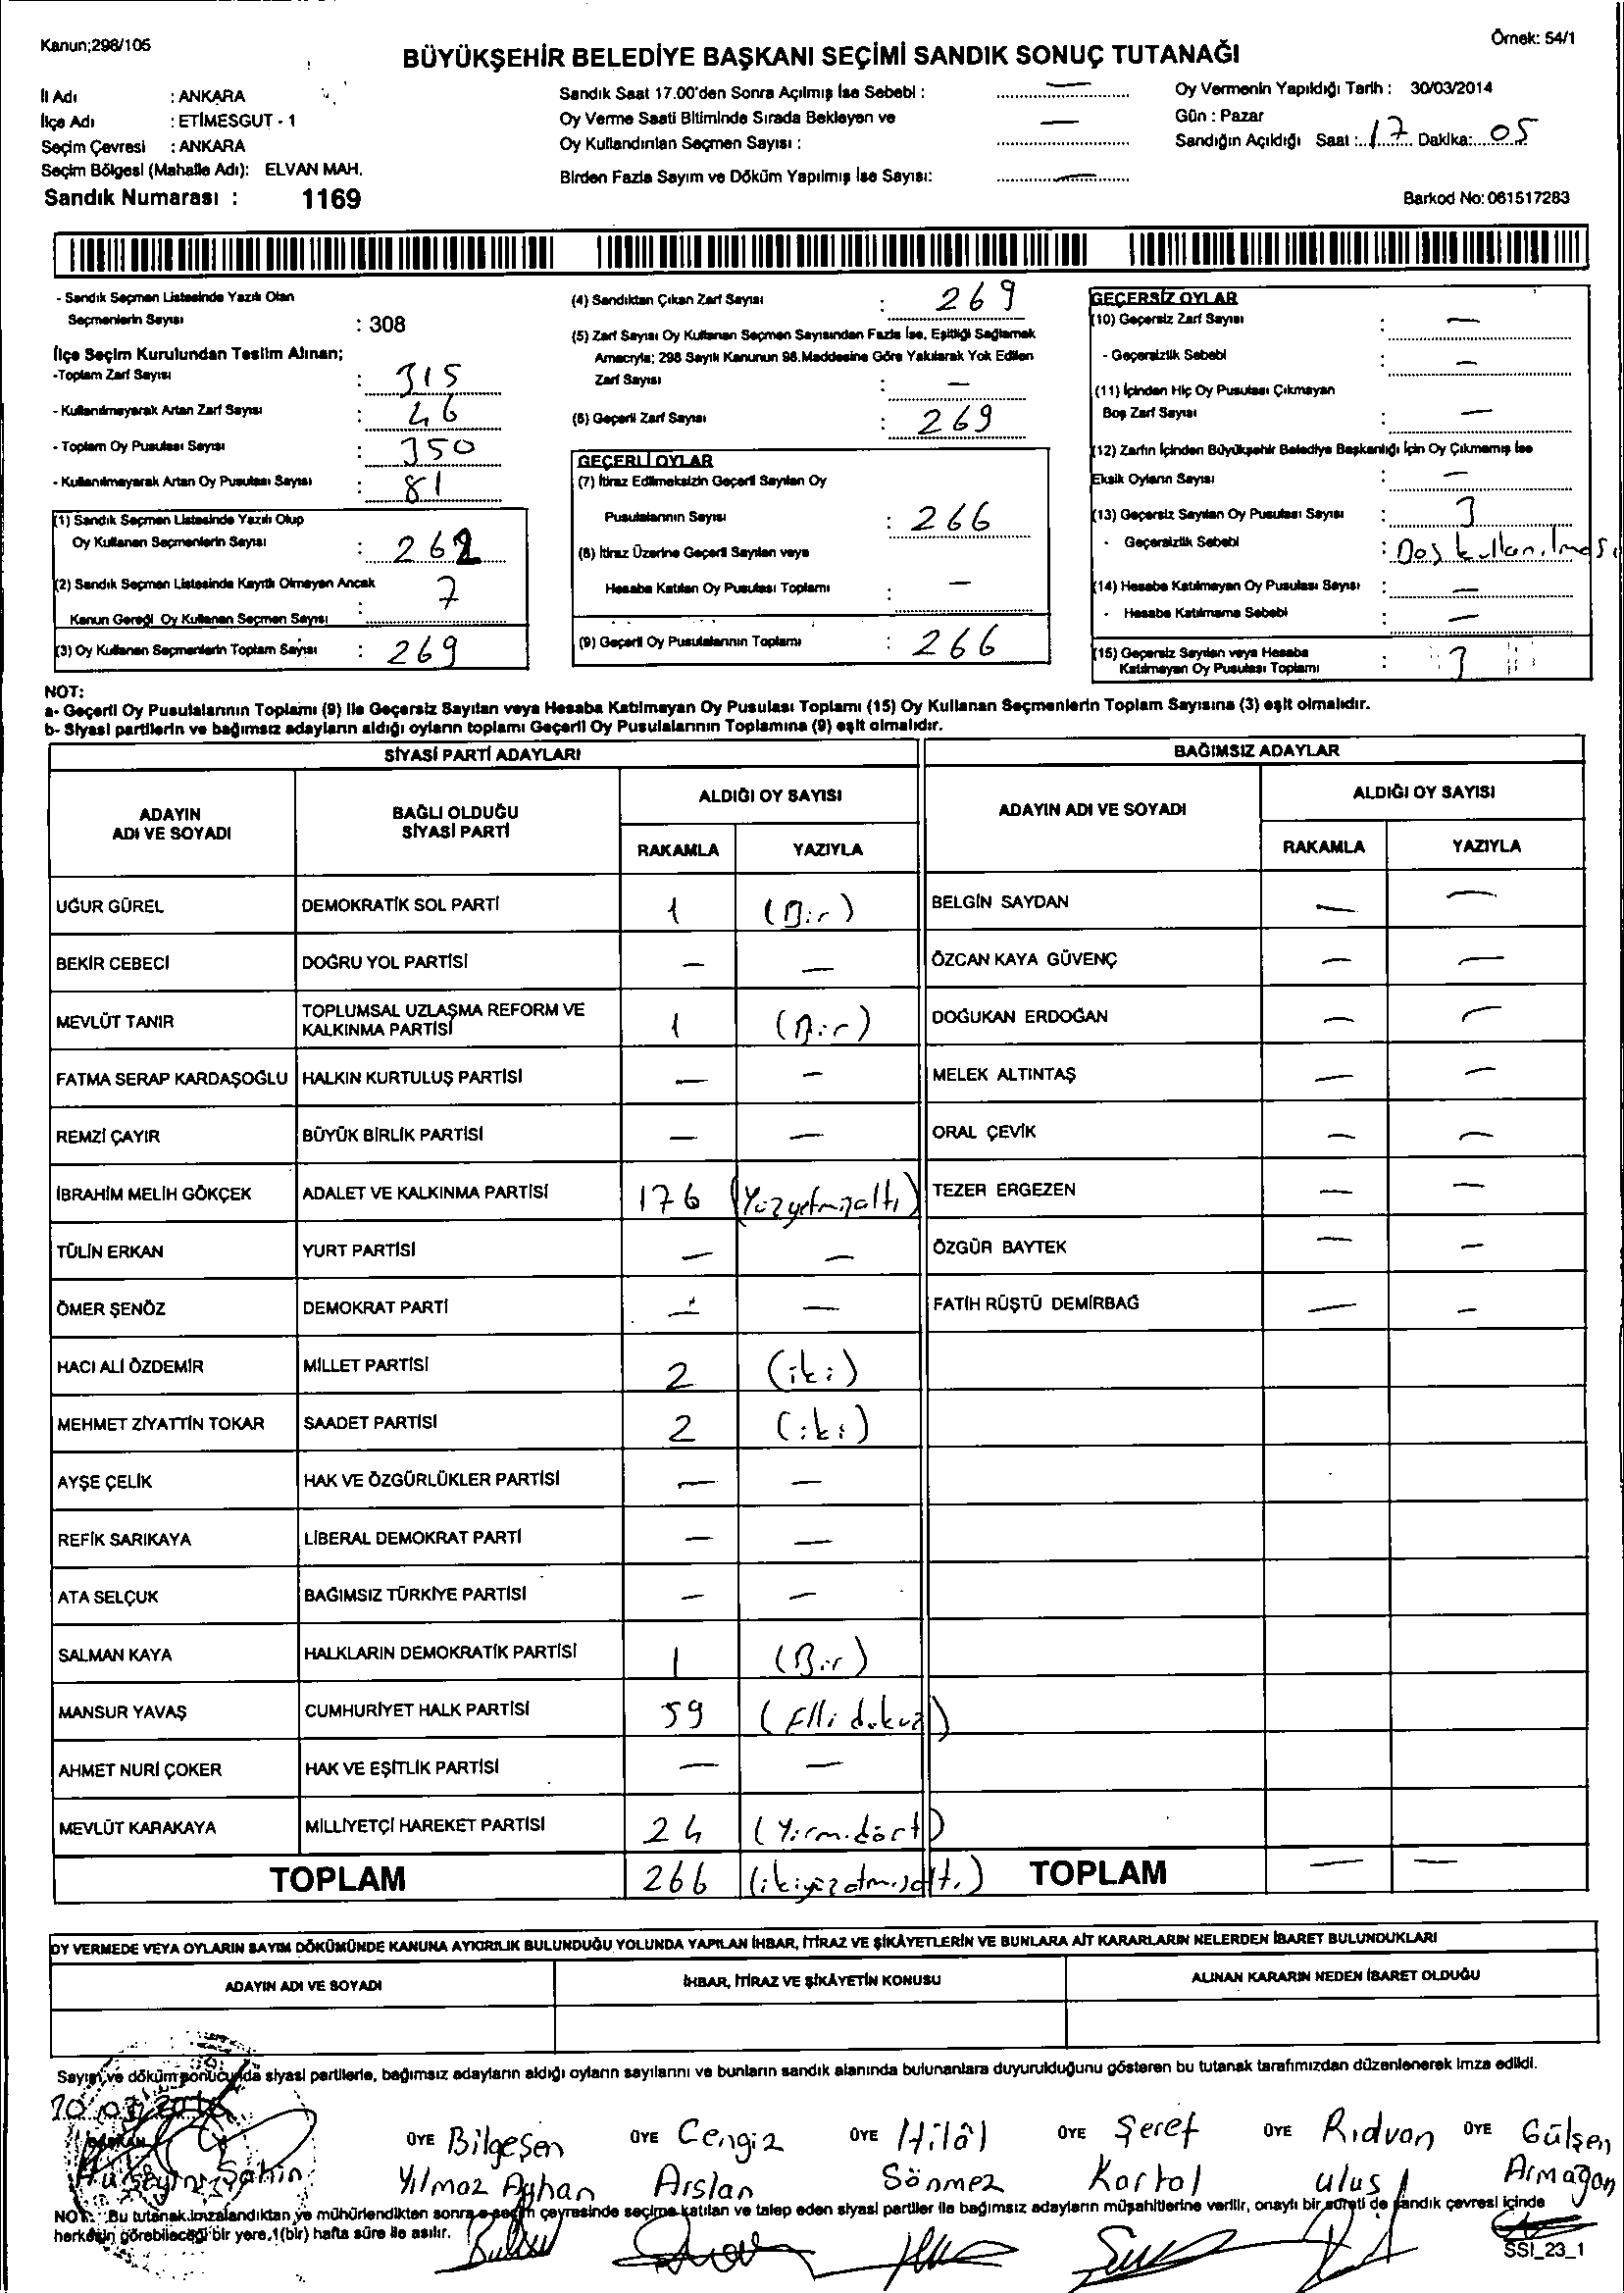 Kanun;298/105
Örnek: 54/1
BÜYÜKŞEHİR BELEDİYE BAŞKANI SEÇİMİ SANDIK SONUÇ TUTANAĞI
İl Adı : ANKARA
İlçe Adı : ETİMESGUT - 1
Seçim Çevresi : ANKARA
Seçim Bölgesi (Mahalle Adı): ELVAN MAH.
Sandık Numarası : 1169
Sandık Saat 17.00'den Sonra Açılmış İse Sebebi : —
Oy Verme Saati Bitiminde Sırada Bekleyen ve
Oy Kullandırılan Seçmen Sayısı : —
Birden Fazla Sayım ve Döküm Yapılmış İse Sayısı: —
Oy Vermenin Yapıldığı Tarih : 30/03/2014
Gün : Pazar
Sandığın Açıldığı Saat : 17 Dakika: 05
Barkod No: 061517283
- Sandık Seçmen Listesinde Yazılı Olan
Seçmenlerin Sayısı : 308
İlçe Seçim Kurulundan Teslim Alınan;
-Toplam Zarf Sayısı : 315
- Kullanılmayarak Artan Zarf Sayısı : 46
- Toplam Oy Pusulası Sayısı : 350
- Kullanılmayarak Artan Oy Pusulası Sayısı : 81
(1) Sandık Seçmen Listesinde Yazılı Olup
Oy Kullanan Seçmenlerin Sayısı : 262
(2) Sandık Seçmen Listesinde Kayıtlı Olmayan Ancak
Kanun Gereği Oy Kullanan Seçmen Sayısı : 7
(3) Oy Kullanan Seçmenlerin Toplam Sayısı : 269
(4) Sandıktan Çıkan Zarf Sayısı : 269
(5) Zarf Sayısı Oy Kullanan Seçmen Sayısından Fazla İse, Eşitliği Sağlamak
Amacıyla; 298 Sayılı Kanunun 98.Maddesine Göre Yakılarak Yok Edilen
Zarf Sayısı : —
(6) Geçerli Zarf Sayısı : 269
GEÇERLİ OYLAR
(7) İtiraz Edilmeksizin Geçerli Sayılan Oy
Pusulalarının Sayısı : 266
(8) İtiraz Üzerine Geçerli Sayılan veya
Hesaba Katılan Oy Pusulası Toplamı : —
(9) Geçerli Oy Pusulalarının Toplamı : 266
GEÇERSİZ OYLAR
(10) Geçersiz Zarf Sayısı : —
- Geçersizlik Sebebi : —
(11) İçinden Hiç Oy Pusulası Çıkmayan
Boş Zarf Sayısı : —
(12) Zarfın İçinden Büyükşehir Belediye Başkanlığı İçin Oy Çıkmamış İse
Eksik Oyların Sayısı : —
(13) Geçersiz Sayılan Oy Pusulası Sayısı : 3
- Geçersizlik Sebebi : Boş kullanılması
(14) Hesaba Katılmayan Oy Pusulası Sayısı : —
- Hesaba Katılmama Sebebi : —
(15) Geçersiz Sayılan veya Hesaba
Katılmayan Oy Pusulası Toplamı : 3
NOT:
a- Geçerli Oy Pusulalarının Toplamı (9) ile Geçersiz Sayılan veya Hesaba Katılmayan Oy Pusulası Toplamı (15) Oy Kullanan Seçmenlerin Toplam Sayısına (3) eşit olmalıdır.
b- Siyasi partilerin ve bağımsız adayların aldığı oyların toplamı Geçerli Oy Pusulalarının Toplamına (9) eşit olmalıdır.
SİYASİ PARTİ ADAYLARI BAĞIMSIZ ADAYLAR
ADAYIN ADI VE SOYADI BAĞLI OLDUĞU SİYASİ PARTİ ALDIĞI OY SAYISI RAKAMLA YAZIYLA ADAYIN ADI VE SOYADI ALDIĞI OY SAYISI RAKAMLA YAZIYLA
UĞUR GÜREL DEMOKRATİK SOL PARTİ 1 (Bir) BELGİN SAYDAN — —
BEKİR CEBECİ DOĞRU YOL PARTİSİ — — ÖZCAN KAYA GÜVENÇ — —
MEVLÜT TANIR TOPLUMSAL UZLAŞMA REFORM VE KALKINMA PARTİSİ 1 (Bir) DOĞUKAN ERDOĞAN — —
FATMA SERAP KARDAŞOĞLU HALKIN KURTULUŞ PARTİSİ — — MELEK ALTINTAŞ — —
REMZİ ÇAYIR BÜYÜK BİRLİK PARTİSİ — — ORAL ÇEVİK — —
İBRAHİM MELİH GÖKÇEK ADALET VE KALKINMA PARTİSİ 176 (Yüzyetmişaltı) TEZER ERGEZEN — —
TÜLİN ERKAN YURT PARTİSİ — — ÖZGÜR BAYTEK — —
ÖMER ŞENÖZ DEMOKRAT PARTİ — — FATİH RÜŞTÜ DEMİRBAĞ — —
HACI ALİ ÖZDEMİR MİLLET PARTİSİ 2 (iki)
MEHMET ZİYATTİN TOKAR SAADET PARTİSİ 2 (iki)
AYŞE ÇELİK HAK VE ÖZGÜRLÜKLER PARTİSİ — —
REFİK SARIKAYA LİBERAL DEMOKRAT PARTİ — —
ATA SELÇUK BAĞIMSIZ TÜRKİYE PARTİSİ — —
SALMAN KAYA HALKLARIN DEMOKRATİK PARTİSİ 1 (Bir)
MANSUR YAVAŞ CUMHURİYET HALK PARTİSİ 59 (Elli dokuz)
AHMET NURİ ÇOKER HAK VE EŞİTLİK PARTİSİ — —
MEVLÜT KARAKAYA MİLLİYETÇİ HAREKET PARTİSİ 24 (Yirmidört)
TOPLAM 266 (ikiyüzatmışaltı) TOPLAM — —
OY VERMEDE VEYA OYLARIN SAYIM DÖKÜMÜNDE KANUNA AYKIRILIK BULUNDUĞU YOLUNDA YAPILAN İHBAR, İTİRAZ VE ŞİKÂYETLERİN VE BUNLARA AİT KARARLARIN NELERDEN İBARET BULUNDUKLARI
ADAYIN ADI VE SOYADI İHBAR, İTİRAZ VE ŞİKÂYETİN KONUSU ALINAN KARARIN NEDEN İBARET OLDUĞU
Sayım ve döküm sonucunda siyasi partilerle, bağımsız adayların aldığı oyların sayılarını ve bunların sandık alanında bulunanlara duyurulduğunu gösteren bu tutanak tarafımızdan düzenlenerek imza edildi.
30/03/2014
BAŞKAN ÜYE Bilgeşen ÜYE Cengiz ÜYE Hilâl ÜYE Şeref ÜYE Rıdvan ÜYE Gülşen
Hüseyin Şahin Yılmaz Ayhan Arslan Sönmez Kartal Ulus Armağan
NOT: Bu tutanak imzalandıktan ve mühürlendikten sonra o seçim çevresinde seçime katılan ve talep eden siyasi partiler ile bağımsız adayların müşahitlerine verilir, onaylı bir sureti de sandık çevresi içinde
herkesin görebileceği bir yere,1(bir) hafta süre ile asılır.
SSI_23_1